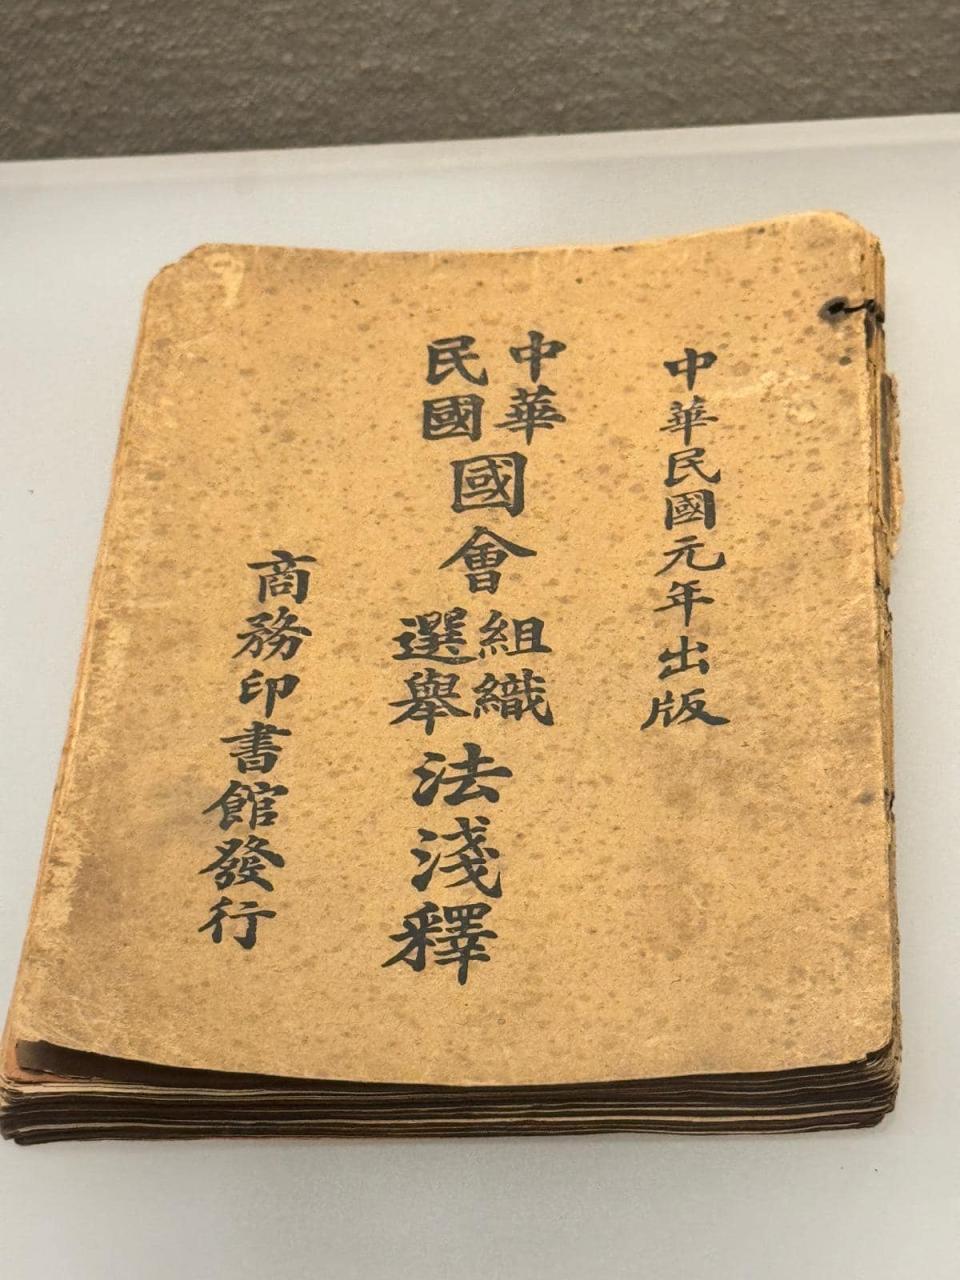 中華民國元年出版
中華民國國會組織選舉法淺釋
商務印書館發行